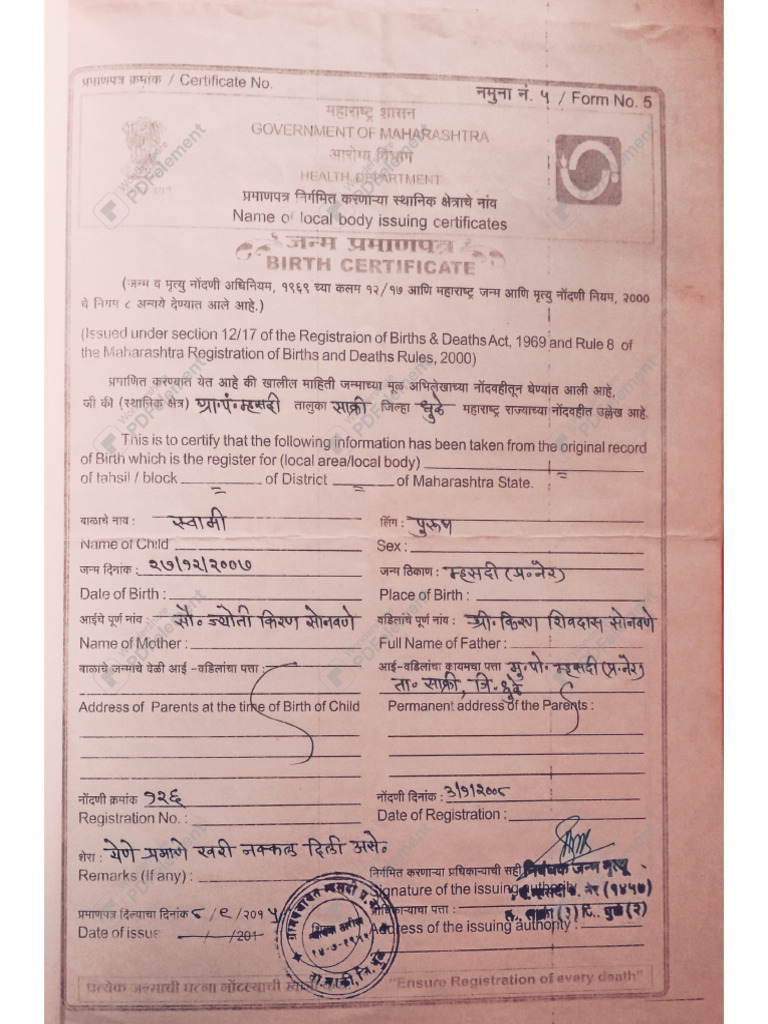 प्रमाणपत्र क्रमांक / Certificate No.
नमुना नं. ५ / Form No. 5
महाराष्ट्र शासन
GOVERNMENT OF MAHARASHTRA
आरोग्य विभाग
HEALTH DEPARTMENT
प्रमाणपत्र निर्गमित करणाऱ्या स्थानिक क्षेत्राचे नांव
Name of local body issuing certificates
जन्म प्रमाणपत्र
BIRTH CERTIFICATE
(जन्म व मृत्यु नोंदणी अधिनियम, १९६९ च्या कलम १२/१७ आणि महाराष्ट्र जन्म आणि मृत्यु नोंदणी नियम, 2000
चे नियम ८ अन्वये देण्यात आले आहे.)
(Issued under section 12/17 of the Registraion of Births & Deaths Act, 1969 and Rule 8 of
the Maharashtra Registration of Births and Deaths Rules, 2000)
प्रमाणित करण्यात येत आहे की खालील माहिती जन्माच्या मूळ अभिलेखाच्या नोंदवहीतून घेण्यांत आली आहे,
जी की (स्थानिक क्षेत्र) ग्रा.पं.म्हसदी तालुका साक्री जिल्हा धुळे महाराष्ट्र राज्याच्या नोंदवहीत उल्लेख आहे.
This is to certify that the following information has been taken from the original record
of Birth which is the register for (local area/local body)
of tahsil / block = of District = of Maharashtra State. =
बाळाचे नाव : स्वामी लिंग : पुरुष
Name of Child Sex :
जन्म दिनांक : २७/१२/२००७ जन्म ठिकाण : म्हसदी (प्र.नेर)
Date of Birth : Place of Birth :
आईचे पूर्ण नांव सौ. ज्योती किरण सोनवणे वडिलांचे पूर्ण नांव : श्री. किरण शिवदास सोनवणे
Name of Mother : Full Name of Father :
बाळाचे जन्माचे वेळी आई -वडिलांचा पत्ता : आई-वडिलांचा कायमचा पत्ता मु.पो. म्हसदी (प्र.नेर)
ता. साक्री, जि. धुळे
Address of Parents at the time of Birth of Child Permanent address of the Parents :
नोंदणी क्रमांक १२६ नोंदणी दिनांक : ३/१/२००८
Registration No. : Date of Registration :
शेरा : येणे प्रमाणे खरी नक्कल दिली असे.
Remarks (if any) : निर्गमित करणाऱ्या प्रधिकाऱ्याची सही निबंधक जन्म मृत्यू
Signature of the issuing authority म्हसदी प्र. नेर (१४५७)
प्रमाणपत्र दिल्याचा दिनांक ८/९/२०१५ प्राधिकाऱ्याचा पत्ता : ता. साक्री (१) जि. धुळे (२)
Date of issue / /201 Address of the issuing authority :
ग्रामपंचायत म्हसदी प्र. नेर
ता. साक्री, जि. धुळे
प्रत्येक जन्माची घटना नोंदल्याची "Ensure Registration of every death"
Wondershare PDFelement